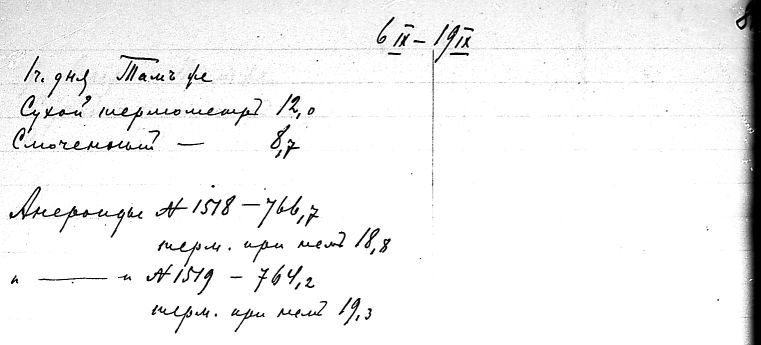 6 IX – 19 IX
1 ч. дня Тамъ же
Сухой термометръ 12,0
Смоченный — 8,7
Анероиды № 1518 – 766,7
терм. при немъ 18,8
" —— " № 1519 – 764,2
терм. при немъ 19,3